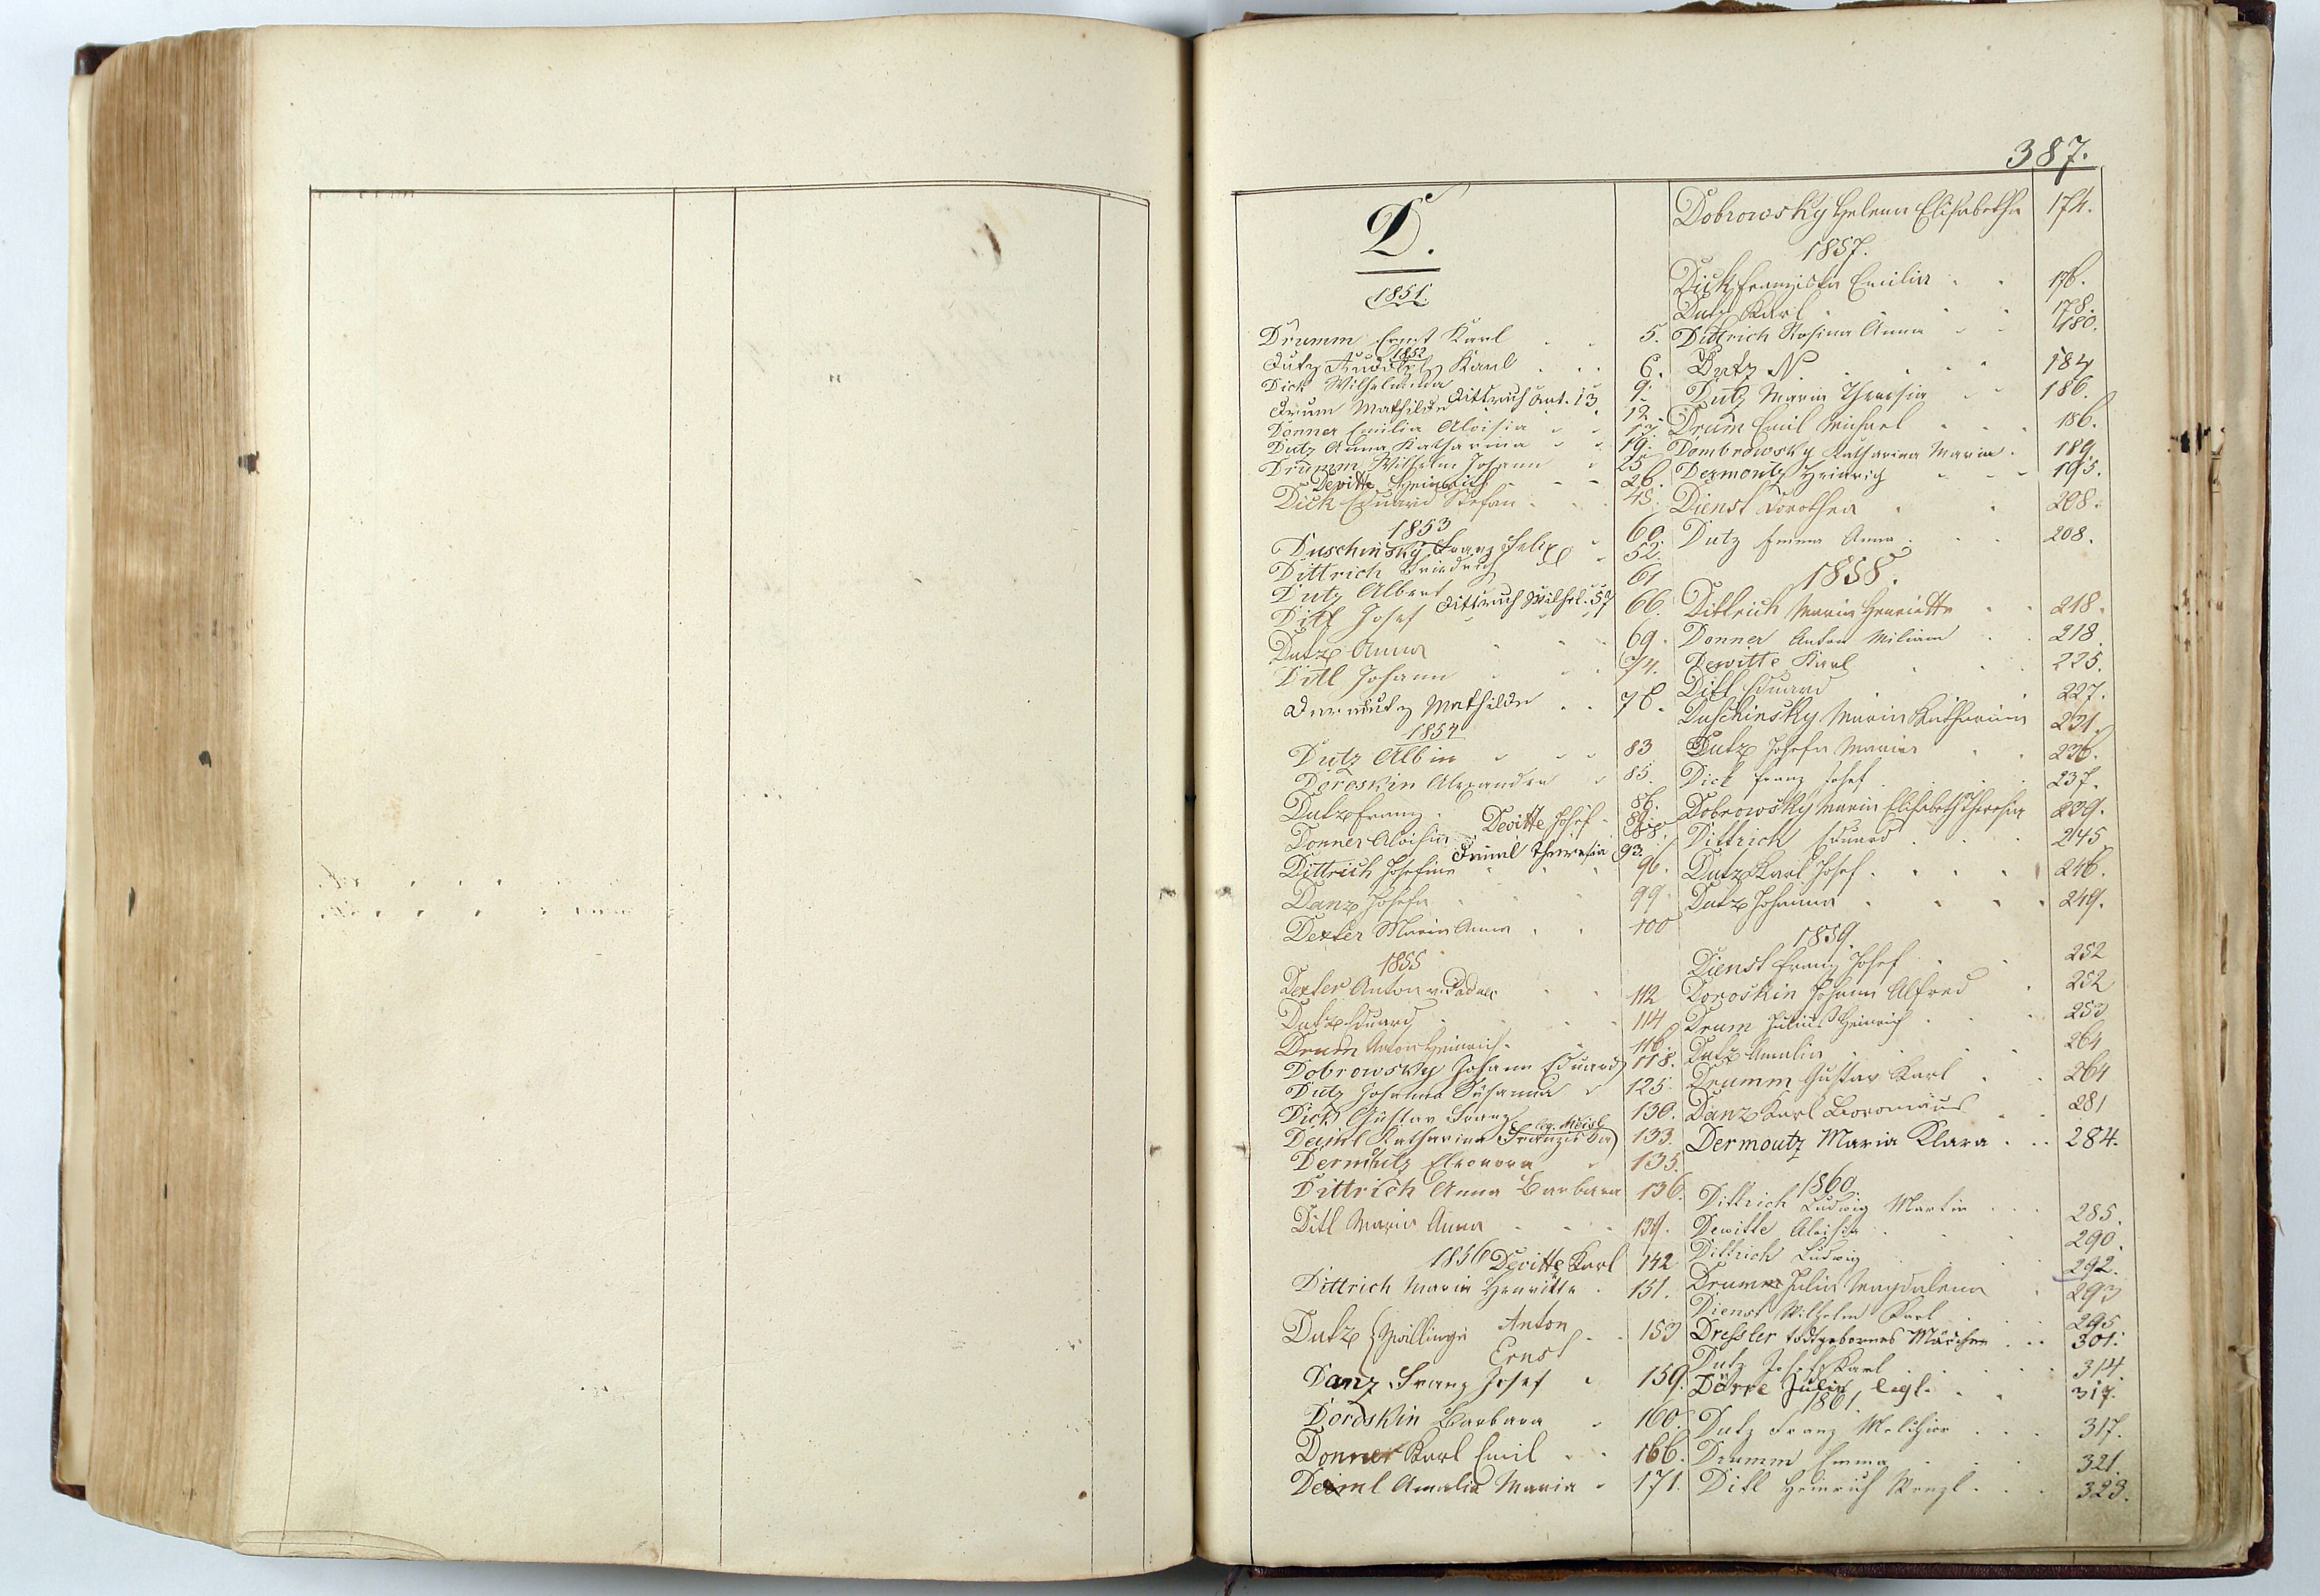 387.
D.
1851.
Drumm Ernst Karl 5.
1852
Dutz Rudolf Karl 6.
Dick Wilhelmina 9.
Drum Mathilde Dittrich Ant. 13 12.
Donner Emilia Aloisia
Dutz Anna Katharina 19.
Drumm Wilhelm Johann 25
Devitte Heinrich 26.
Dick Eduard Stefan 45.
1853
Duschinsky Franz Felix 60.
Dittrich Friedrich 52.
Dutz Albert 61
Ditl Josef Dittrich Wilhel. 57 66.
Dutz Anna 69.
Ditl Johann 74.
Dermoutz Mathilde 78.
1854
Dutz Albin 83
Doroskin Alexandra 85.
Dutz Franz 86.
Devitte Josef
Donner Aloisia
Deiml Theresia 93.
Dittrich Josefine 96.
Danz Josefa 99
Dexler Maria Anna 100
1855
Dexler Anton v. Paduas 112
Dutz Eduard 114
Drum Anton Heinrich 116.
Dobrowsky Johann Eduard 118.
Dutz Johanna Susanna 125.
Dick Gustav Franz 130.
Deiml Katharina Franziska 133.
Dermoutz Eleonora 135.
Dittrich Anna Barbara 136.
Ditl Maria Anna 139.
1856 Devitte Karl 142
Dittrich Maria Henriette 151.
Dutz Zwillinge Anton 153
Ernst
Danz Franz Josef 159.
Doroskin Barbara 160.
Donner Karl Emil 166.
Deiml Amalia Maria 171.
Dobrowsky Helena Elisabetha 174.
1857.
Dick Franziska Emilia 176.
Dutz Karl 178.
Dittrich Rosina Anna 180.
Dutz N. 184
Dutz Maria Theresia 186.
Drum Emil Michael 186.
Dombrowsky Katharina Maria 189.
Dermoutz Heinrich 195.
Dienst Dorothea 208.
Dutz Emma Anna 208.
1858.
Dittrich Maria Henriette 218.
Donner Anton 218.
Dewitte Karl 225.
Ditl Eduard 227.
Duschinsky Maria Katharina 231.
Dutz Josefa Maria 236.
Dick Franz Josef 237.
Dobrowsky Maria Elisabeth Theresia 239.
Dittrich Eduard 245
Dutz Karl Josef 246.
Dutz Johanna 249.
1859.
Dienst Franz Josef 252
Doroskin Johann Alfred 252
Drum Julius Heinrich 253
Dutz Amalia 264
Drumm Gustav Karl 264
Danz Karl Boromäus 281
Dermoutz Maria Klara 284.
1860
Dittrich Ludwig Martin 285.
Dewitte Aloisia 290.
Dittrich Ludwig 292.
Drumm Julia Magdalena 293
Dienst Wilhelm Karl 295
Dressler todtgebornes Mädchen 301.
Dutz Josef Karl 314.
Dörre Julie legl. 317.
1861.
Dutz Franz Melchior 317.
Drumm Emma 321.
Ditl Heinrich Wenzl 323.